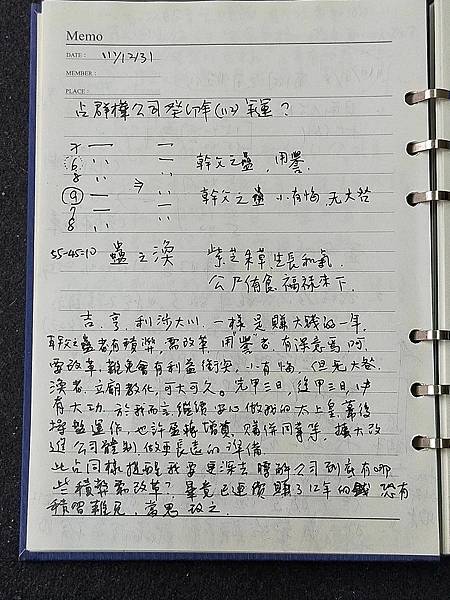 Memo
DATE: 111/12/31
MEMBER:
PLACE:
占群樺公司癸卯年(112)氣運？
7
6 幹父之蠱，用譽。
8
9 ⇒ 幹父之蠱 小有悔，无大咎
7
8
55-45=10 蠱之渙 紫芝朱草，生長和氣，
公尸侑食，福祿來下。
吉，亨，利涉大川，一樣是賺大錢的一年，
幹父之蠱者有積弊，需改革，用譽者，有深意焉
要改革難免會有利益衝突，小有悔，但无大咎。
渙者，立廟教化，可大可久。先甲三日，後甲三日，
有大功，於我而言繼續安心做我的太上皇，幕後
操盤運作，也許盈轉增資，購併同等等，擴大改
進公司體制，做更長遠的準備
此占同樣提醒我要更深去瞭解公司到底有哪
些積弊需改革？畢竟已連續賺了12年的錢，恐有
積習難免，當思改之。